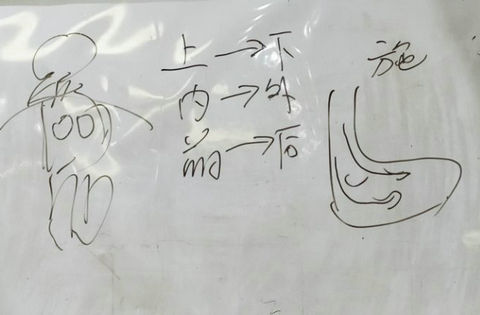 上→下
内→外
前→后
施